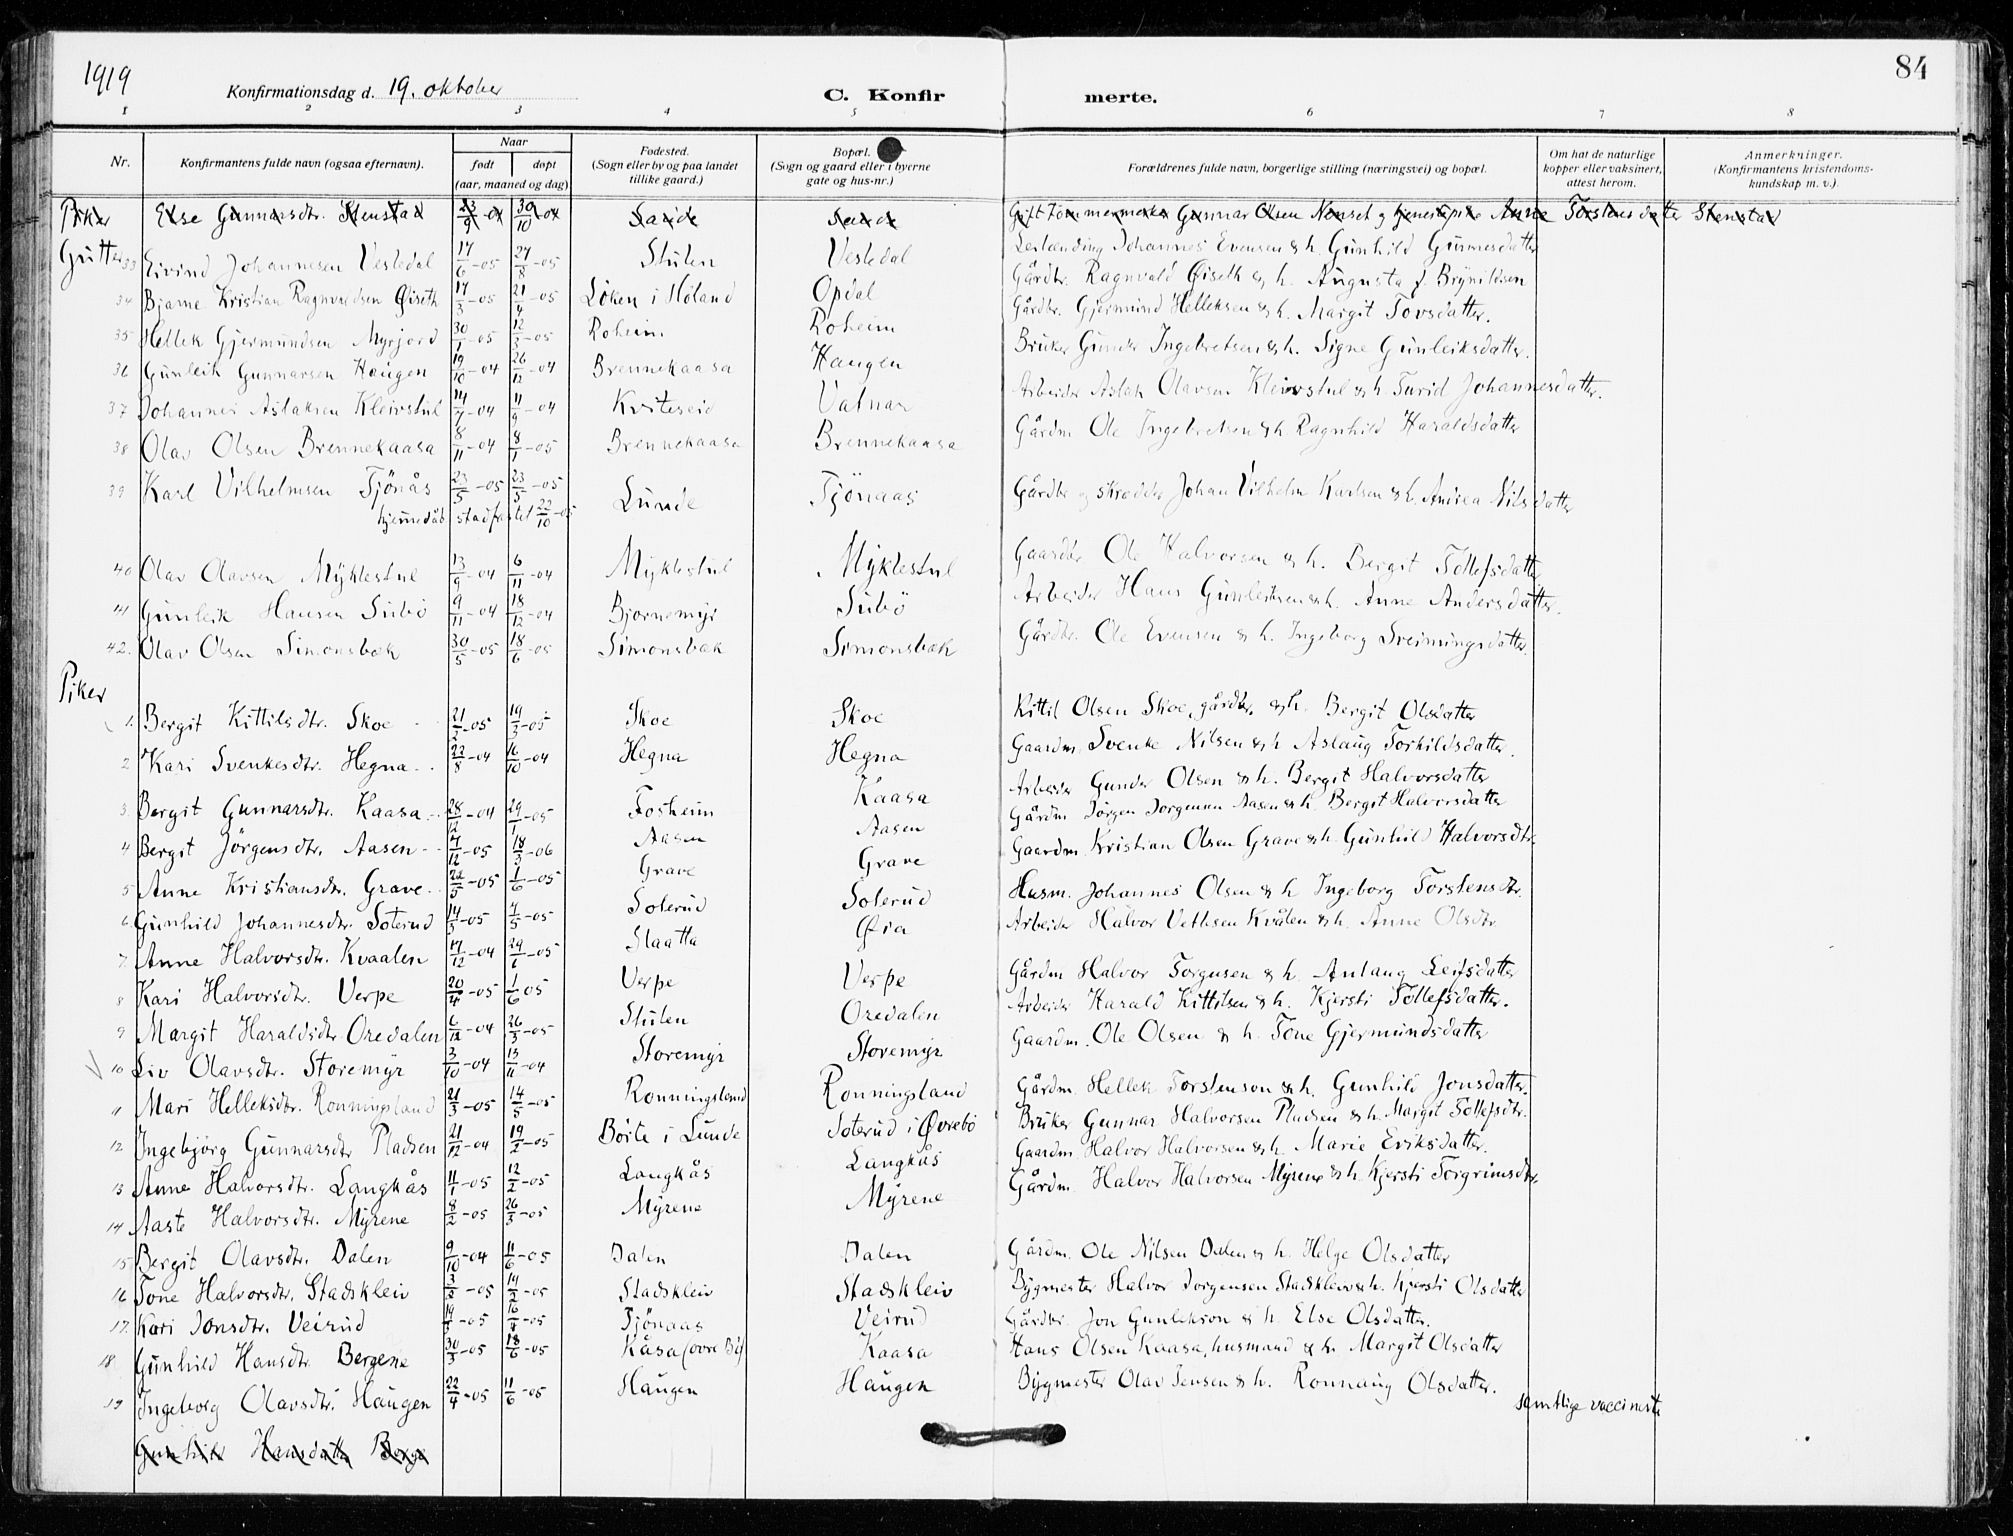 1919
84
Konfirmationsdag d. 19. oktober
C. Konfir merte.
1 2 3 4 5 6 7 8
Nr. Konfirmantens fulde navn (ogsaa efternavn). Naar født døpt (aar, maaned og dag) Fødested. (Sogn eller by og paa landet tillike gaard.) Bopæl. (Sogn og gaard eller i byerne gate og hus-nr.) Forældrenes fulde navn, borgerlige stilling (næringsvei) og bopæl. Om hat de naturlige kopper eller vaksinert, attest herom. Anmerkninger. (Konfirmantens kristendoms-kundskap m. v.)
Piker Else Gunnarsdtr. Stenstad 23/9-04 30/10-04 Saude Saude Gift tømmermerker Gunnar Olsen Nenset og tjenestepike Anne Torstensdatter Stenstad
Gutter
33 Eivind Johannesen Vesledal 17/6-05 27/8-05 Stulen Vesledal Leilending Johannes Evensen & h. Gunhild Gunnesdatter
34 Bjarne Kristian Ragnvaldsen Øiseth 17/3-05 21/4-05 Løken i Høland Opdal Gårdbr. Ragnvald Øiseth & h. Augusta f. Brynildsen
35 Hellek Gjermundsen Myrjord 30/1-05 12/3-05 Roheim Roheim Gårdbr. Gjermund Helleksen & h. Margit Tovsdatter.
36 Gunleik Gunnarsen Haugen 19/10-04 26/12-04 Brennekaasa Haugen Bruker Gunder Ingebretsen & h. Signe Gunleiksdatter.
37 Johannes Aslaksen Kleivstul 14/7-04 11/9-04 Kviteseid Vatnar Arbeider Aslak Olavsen Kleivstul & h. Turid Johannesdatter.
38 Olav Olsen Brennekaasa 8/11-04 8/1-05 Brennekaasa Brennekaasa Gårdm. Ole Ingebretsen & h Ragnhild Haraldsdatter
39 Karl Vilhelmsen Tjönås 23/5-05 23/5-05 Lunde Tjönaas Gårdbr og skrædder Johan Vilhelm Karlsen & h. Andrea Nilsdatter
hjemmedåb stadfæstet 22/10-05
40 Olav Olavsen Myklestul 13/9-04 6/11-04 Myklestul Myklestul Gaardbr Ole Halvorsen & h. Bergit Tollefsdatter
41 Gunleik Hansen Subö 9/11-04 18/12-04 Bjornemyr Subö Arbeider Hans Gunleiksen & h. Anne Andersdatter.
42. Olav Olsen Simonsbæk 30/5-05 18/6-05 Simonsbæk Simonsbæk Gårdbr. Ole Evensen & h. Ingeborg Sveinungsdatter.
Piker
1. Bergit Kittilsdtr. Skoe 21/2-05 19/3-05 Skoe Skoe Kittil Olsen Skoe, gårdbr. & h. Bergit Olsdatter
2 Kari Svenkesdtr. Hegna 22/8-04 16/10-04 Hegna Hegna Gaardm. Svenke Nilsen & h Aslaug Torkildsdatter.
3 Bergit Gunnarsdtr. Kaasa 28/12-04 29/1-05 Fosheim Kaasa Arbeider Gunder Olsen & h. Bergit Halvorsdatter
4 Bergit Jörgensdtr. Aasen 7/12-05 18/3-06 Aasen Aasen Gårdm Jörgen Jorgensen Aasen & h. Bergit Halvorsdatter
5 Anne Kristiansdtr. Grave 22/3-05 1/6-05 Grave Grave Gaardm. Kristian Olsen Grave & h. Gunhild Halvorsdtr.
6 Gunhild Johannesdtr. Soterud 14/3-05 7/5-05 Soterud Soterud Husm. Johannes Olsen & h Ingeborg Torstensdtr.
7. Anne Halvorsdtr. Kvaalen 17/12-04 29/1-05 Slaatta Øia Arbeider Halvor Vetlesen Kvålen & h. Anne Olsdtr.
8 Kari Halvorsdtr. Verpe 20/4-05 1/6 05 Verpe Verpe Gårdm Halvor Torgusen & h. Anlaug Leifsdatter
9 Margit Haraldsdtr. Oredalen 6/12-04 26/3-05 Stulen Oredalen Arbeider Harald Kittilsen & h. Kjersti Tollefsdatter.
10 Liv Olavsdtr. Storemyr 3/10-04 13/11-04 Storemyr Storemyr Gaardm. Ole Olsen & h. Tone Gjermundsdatter
11 Mari Helleksdtr. Ronningsland 21/3-05 14/5-05 Ronningsland Ronningsland Gårdm. Hellek Torstenson & h. Gunhild Jonsdatter.
12 Ingebjörg Gunnarsdtr Pladsen 21/12-04 19/2-05 Böite i Lunde Soterud i Øvrebö Bruker Gunnar Halvorsen Pladsen & h. Margit Tollefsdtr.
13 Anne Halvorsdtr. Langkås 11/1-05 12/2-05 Langkås Langkås Gaardm. Halvor Halvorsen & h. Marie Eriksdatter.
14 Aaste Halvorsdtr. Myrene 8/2-05 26/3-05 Myrene Myrene Gårdm. Halvor Halvorsen Myrene & h. Kjersti Torgrimsdtr.
15 Bergit Olavsdtr. Dalen 9/10-04 11/6-05 Dalen Dalen Gårdm. Ole Nilsen Dalen & h. Helge Olsdatter
16 Tone Halvorsdtr. Stadskleiv 3/2-05 19/2-05 Stadskleiv Stadskleiv Bygmester Halvor Jorgensen Stadskleiv & h. Kjersti Olsdatter
17. Kari Jonsdtr. Veirud 19/3-05 16/4-05 Tjönaas Veirud Gårdbr. Jon Gunlekson & h. Else Olsdatter.
18. Gunhild Hansdtr Bergene 30/3-05 18/6-05 Kåsa (ovre Bö) Kaasa Hans Olsen Kaasa, husmand & h. Margit Olsdatter
19 Ingeborg Olavsdtr. Haugen 22/4-05 11/6-05 Haugen Haugen Bygmester Olav Jensen & h. Ronnaug Olsdatter.
samtlige vaccinerte
Gunhild Hansdatter Berge